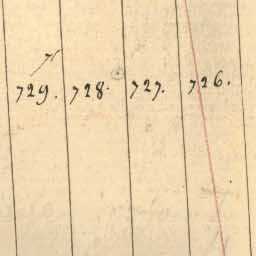 729. 728. 727. 726.